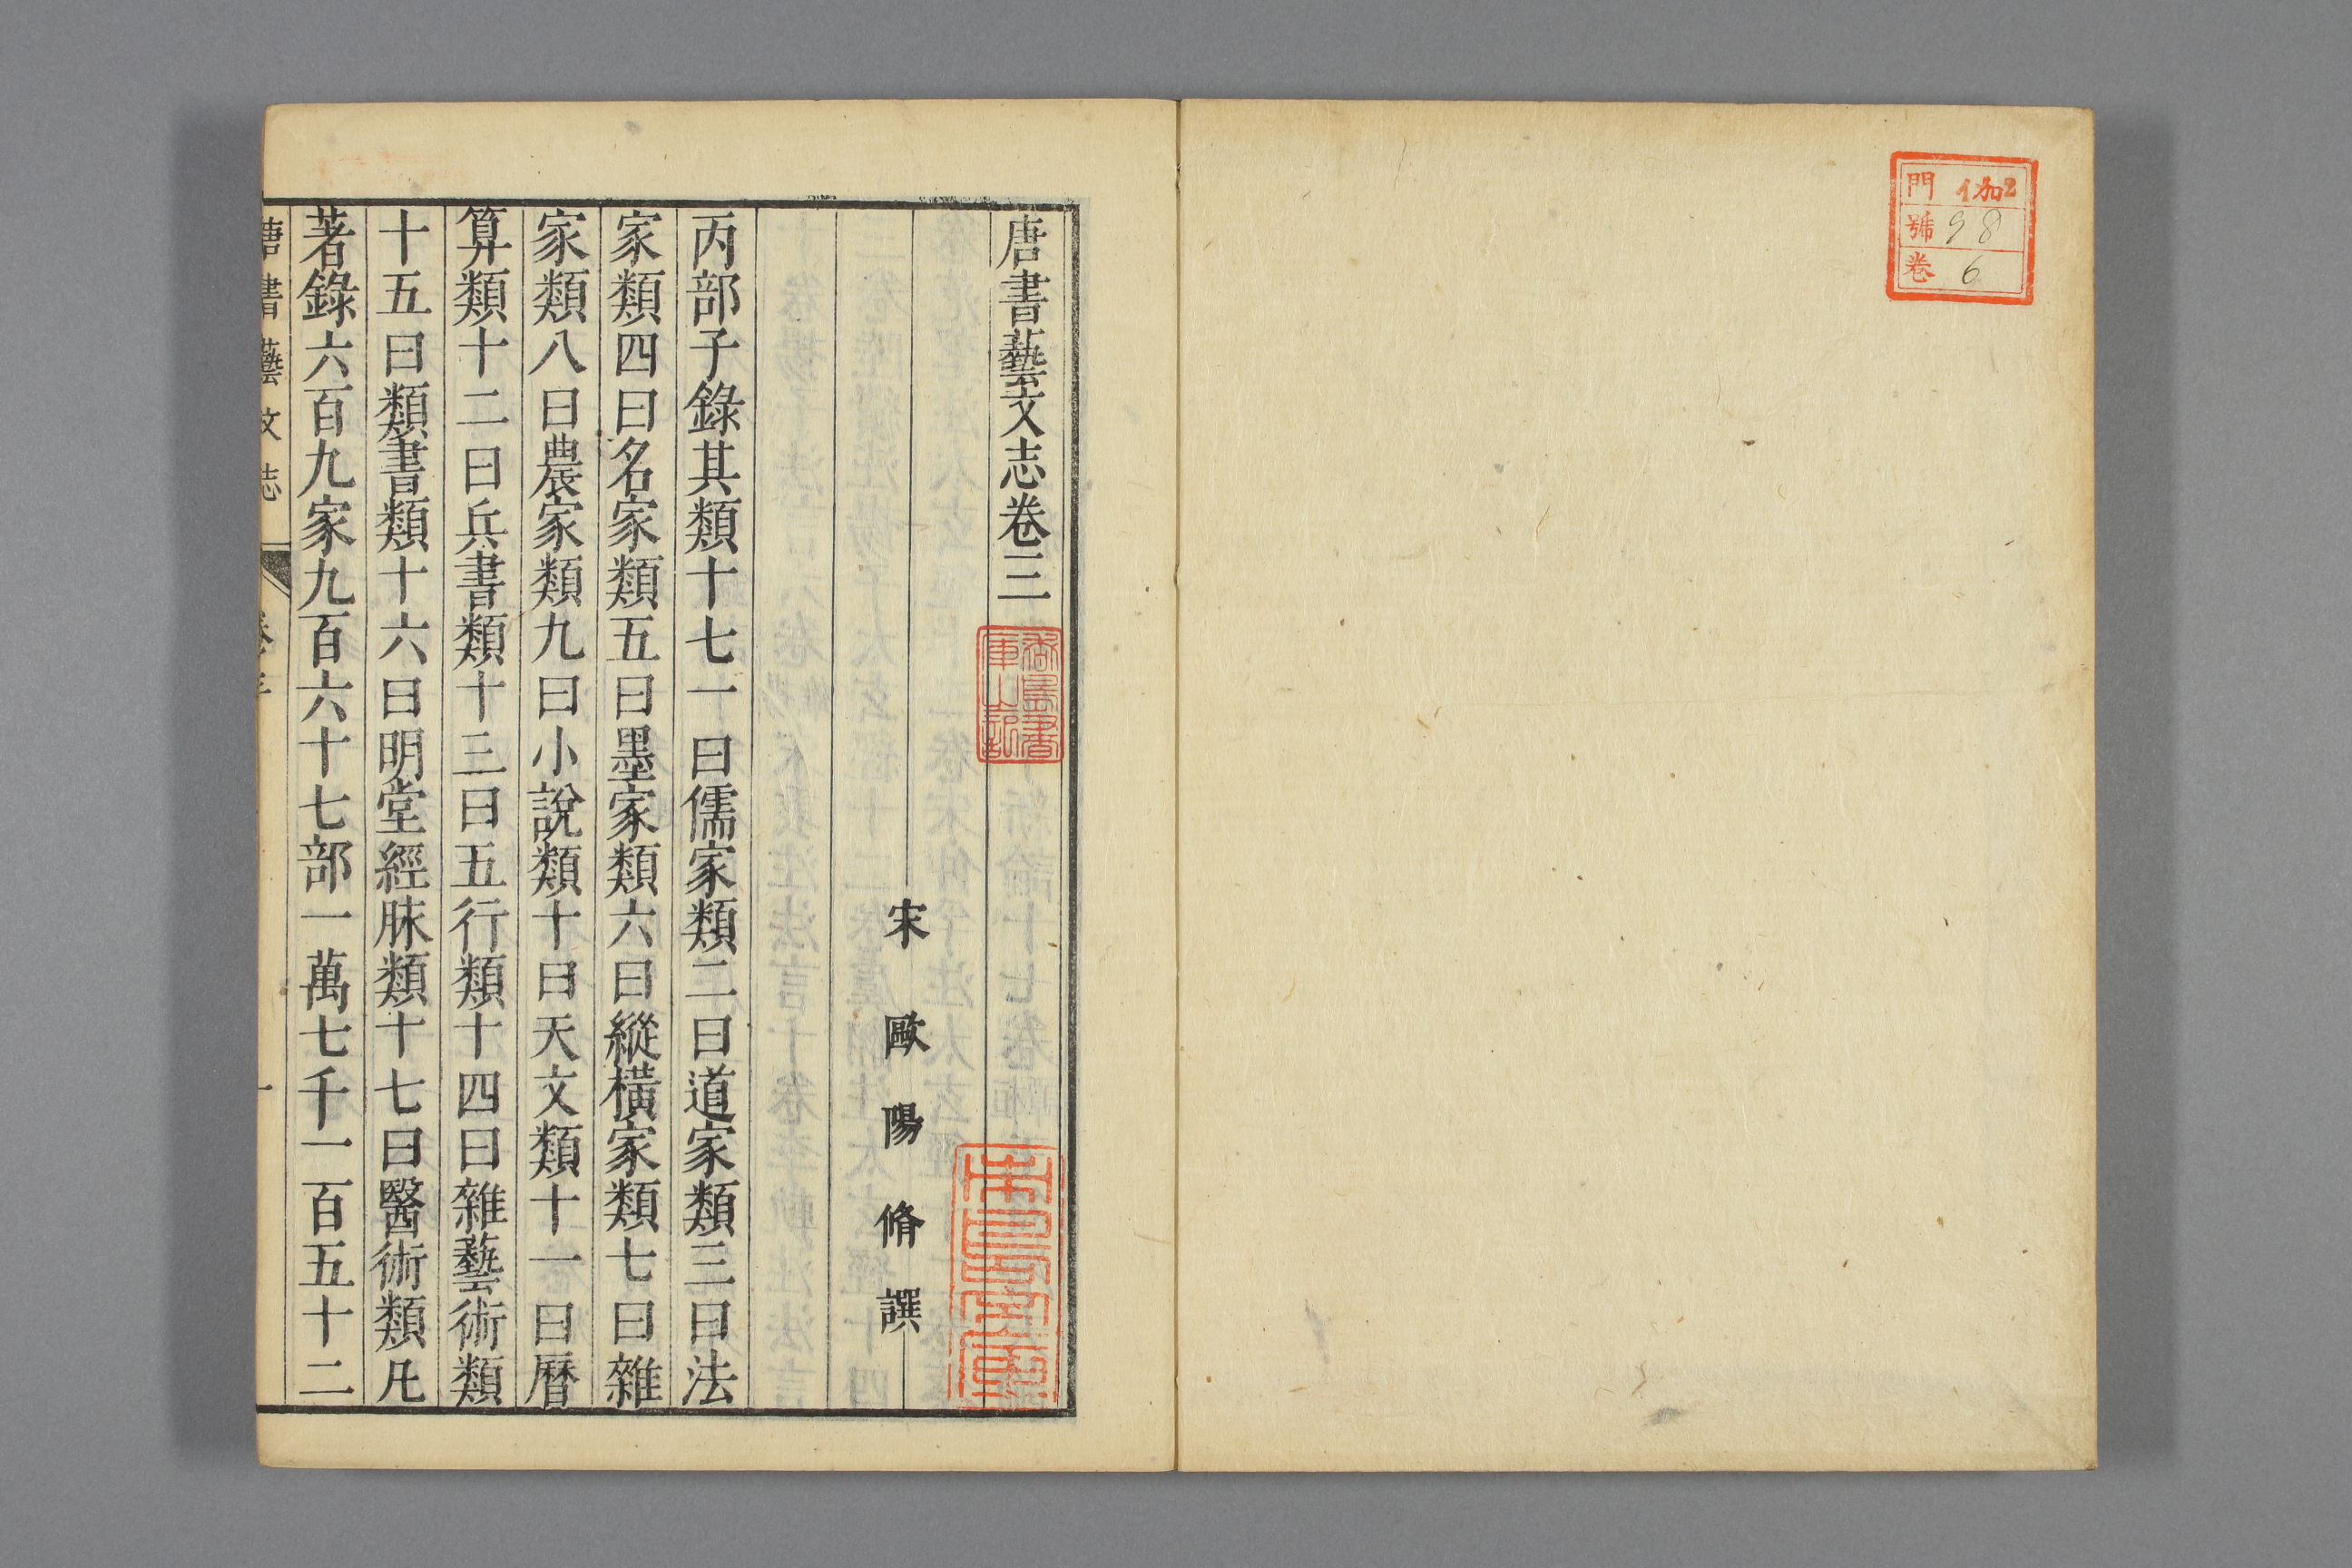 門 伽2
號 98
卷 6
唐書藝文志卷三
宋 歐陽脩 譔
丙部子錄其類十七一曰儒家類二曰道家類三曰法
家類四曰名家類五曰墨家類六曰縱橫家類七曰雜
家類八曰農家類九曰小說類十曰天文類十一曰曆
算類十二曰兵書類十三曰五行類十四曰雜藝術類
十五曰類書類十六曰明堂經脉類十七曰醫術類凡
著錄六百九家九百六十七部一萬七千一百五十二
唐書藝文志 卷三 一